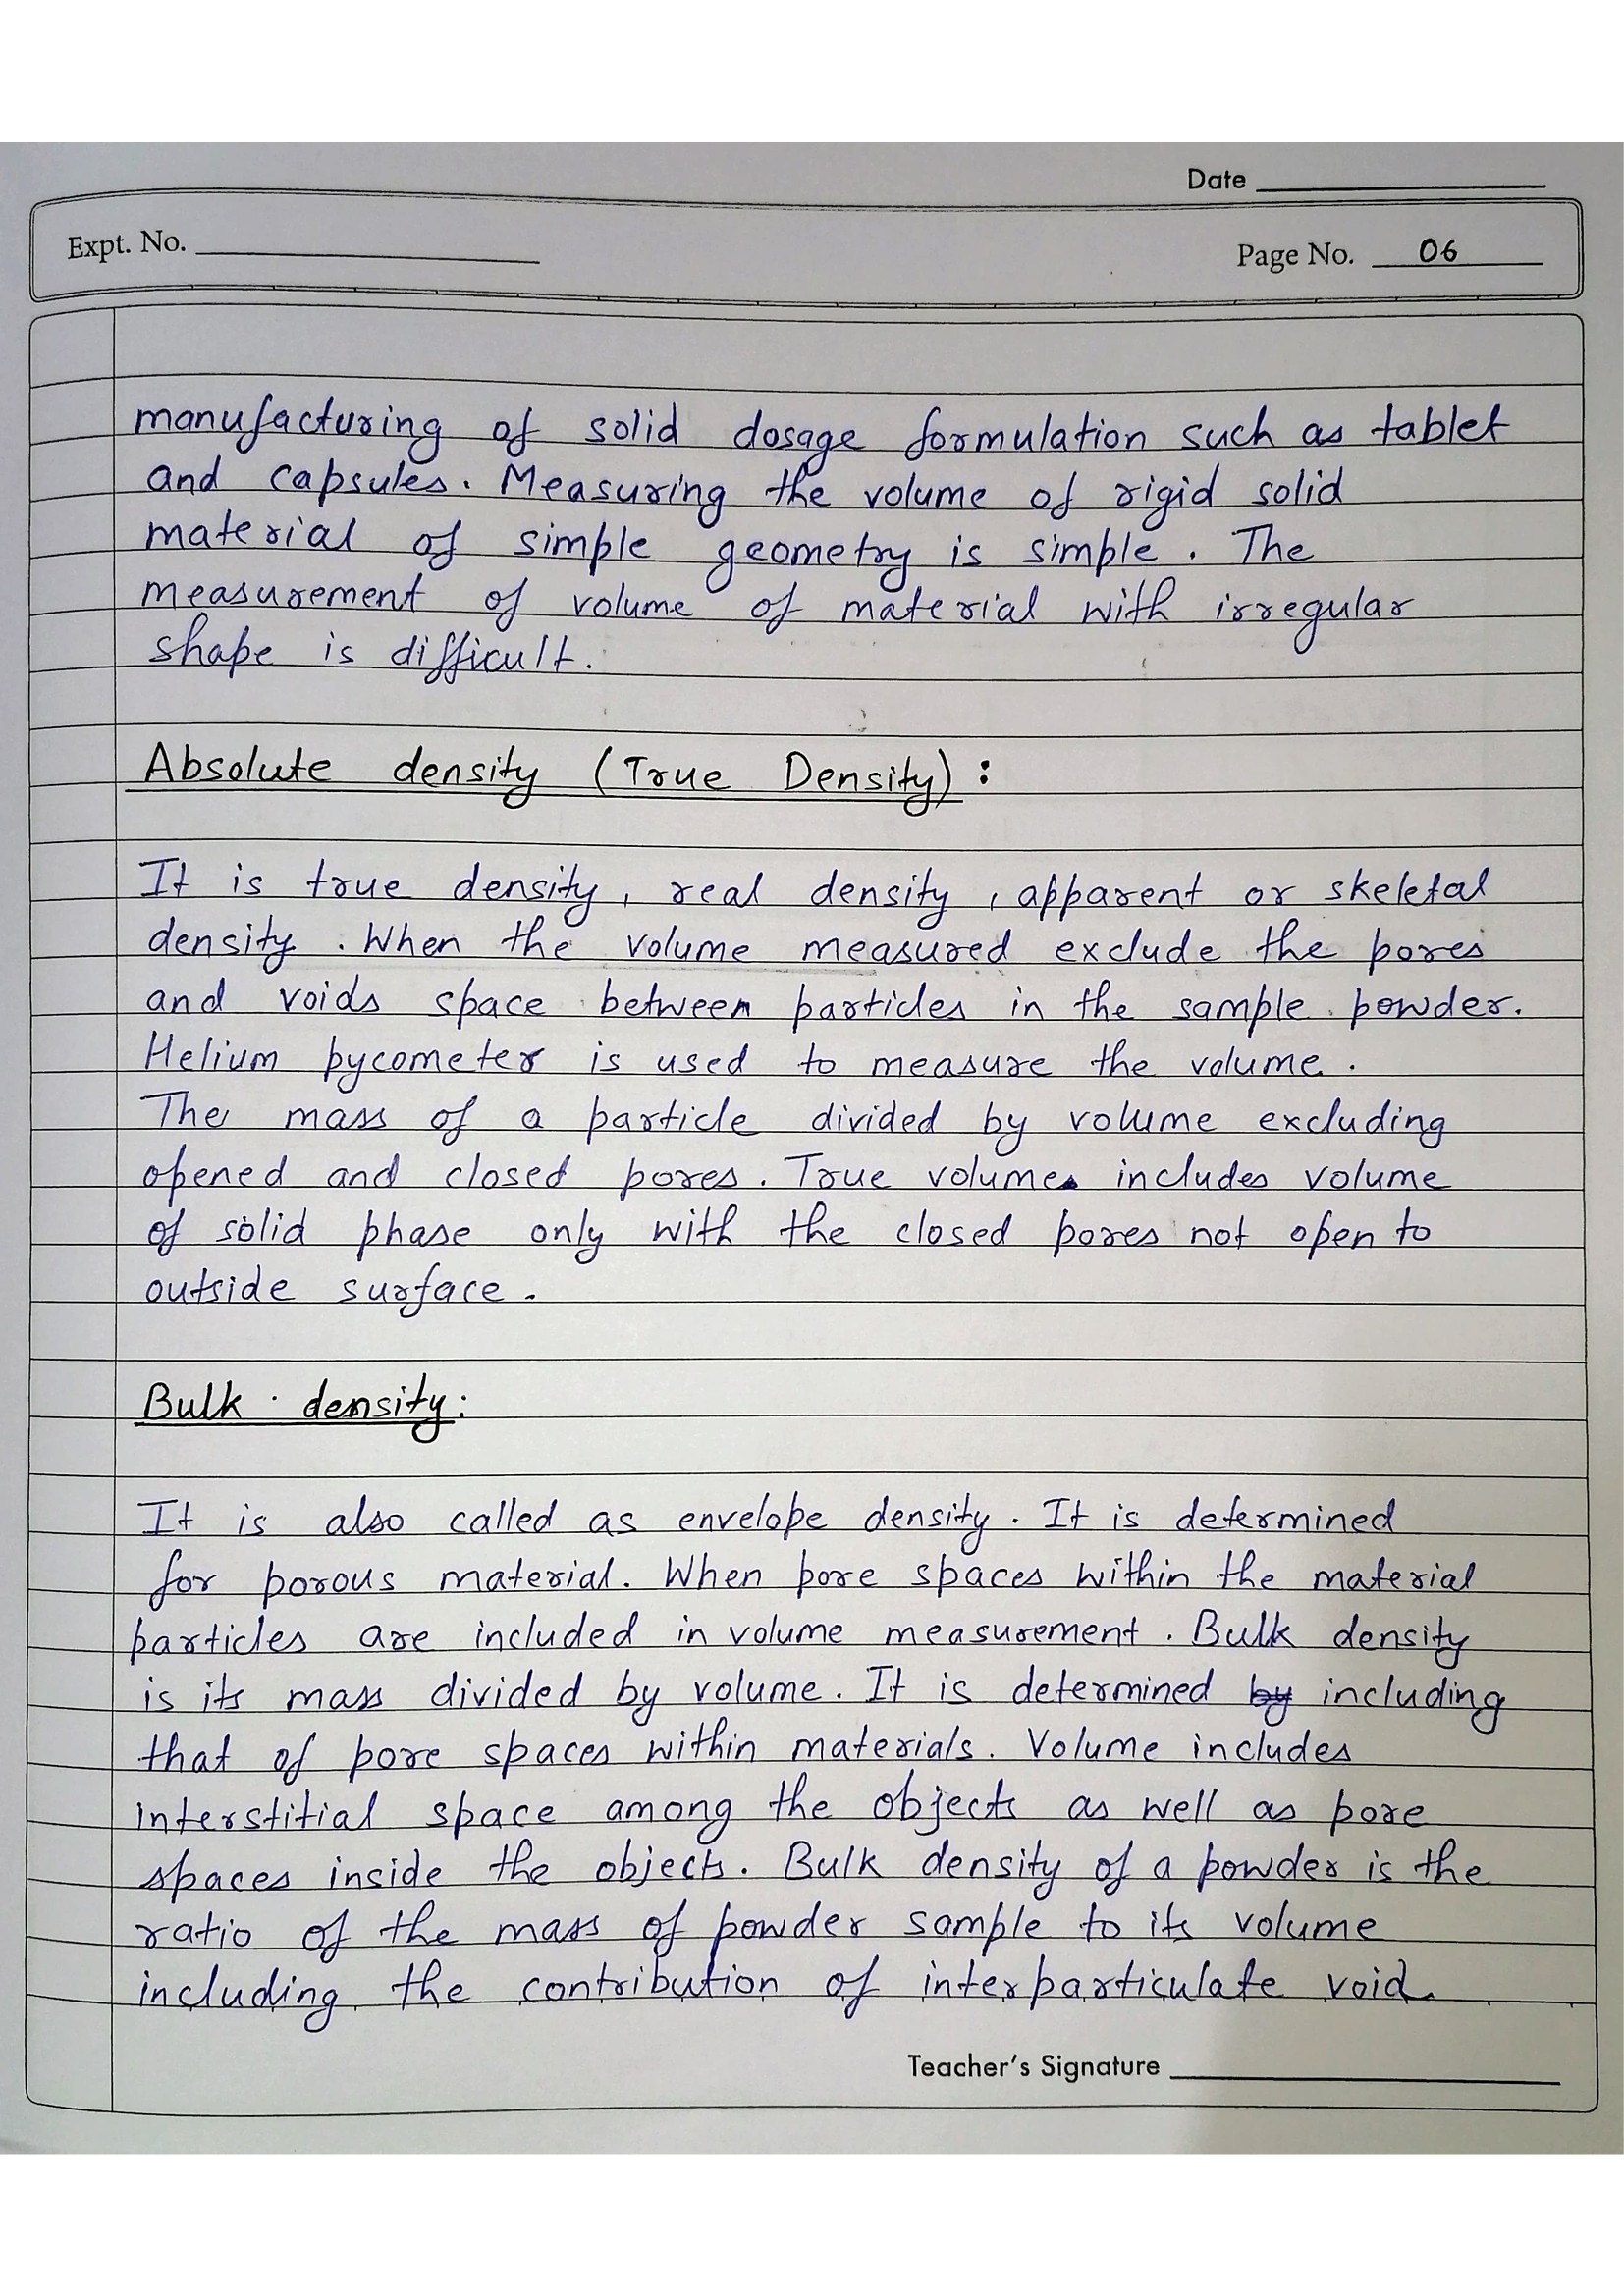 Date
Expt. No.
Page No. 06
manufacturing of solid dosage formulation such as tablet
and capsules. Measuring the volume of rigid solid
material of simple geometry is simple. The
measurement of volume of material with irregular
shape is difficult.
Absolute density (True Density):
It is true density, real density, apparent or skeletal
density. When the volume measured exclude the pores
and voids space between particles in the sample powder.
Helium pycometer is used to measure the volume.
The mass of a particle divided by volume excluding
opened and closed pores. True volumes includes volume
of solid phase only with the closed pores not open to
outside surface.
Bulk density:
It is also called as envelope density. It is determined
for porous material. When pore spaces within the material
particles are included in volume measurement. Bulk density
is its mass divided by volume. It is determined by including
that of pore spaces within materials. Volume includes
interstitial space among the objects as well as pore
spaces inside the objects. Bulk density of a powder is the
ratio of the mass of powder sample to its volume
including the contribution of interparticulate void
Teacher's Signature